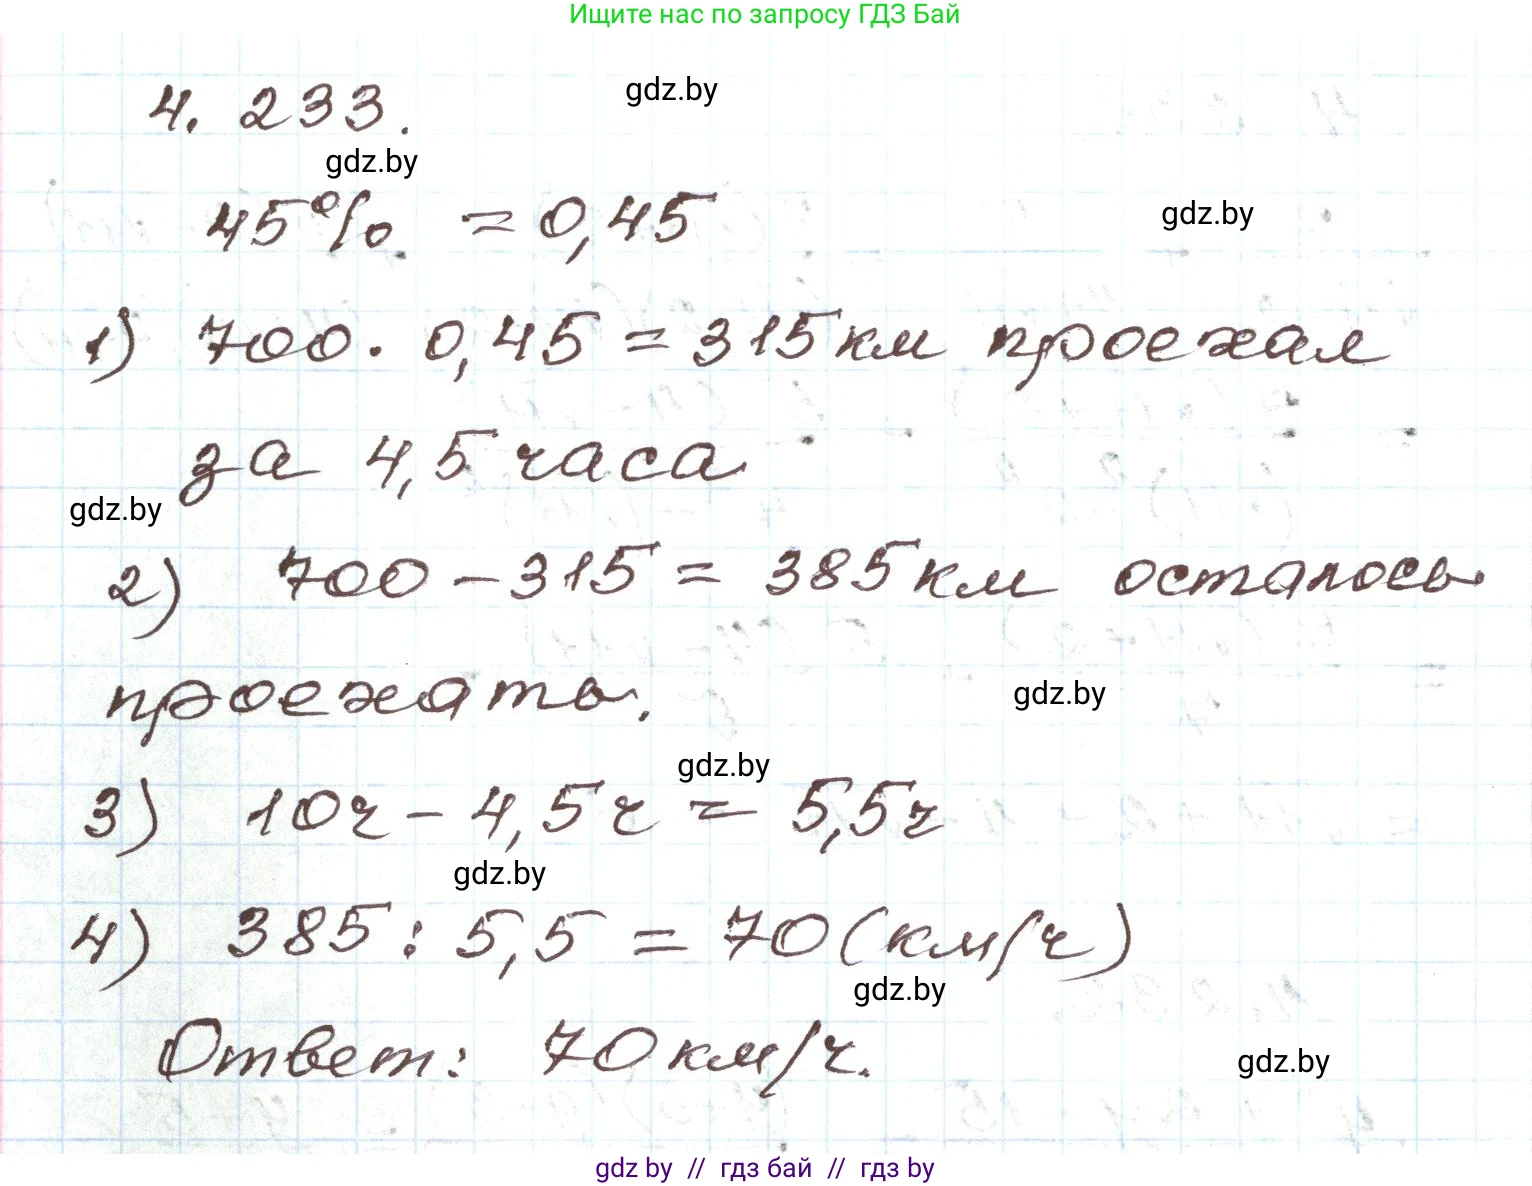 Ищите нас по запросу ГДЗ Бай
4. 233.
gdz.by
gdz.by
45% = 0,45
gdz.by
1) 700 · 0,45 = 315 км проехал
за 4,5 часа
gdz.by
2) 700 – 315 = 385 км осталось
проехать.
gdz.by
gdz.by
3) 10ч – 4,5ч = 5,5ч
gdz.by
4) 385 : 5,5 = 70 (км/ч)
gdz.by
Ответ: 70 км/ч.
gdz.by
gdz by // гдз бай // гдз by